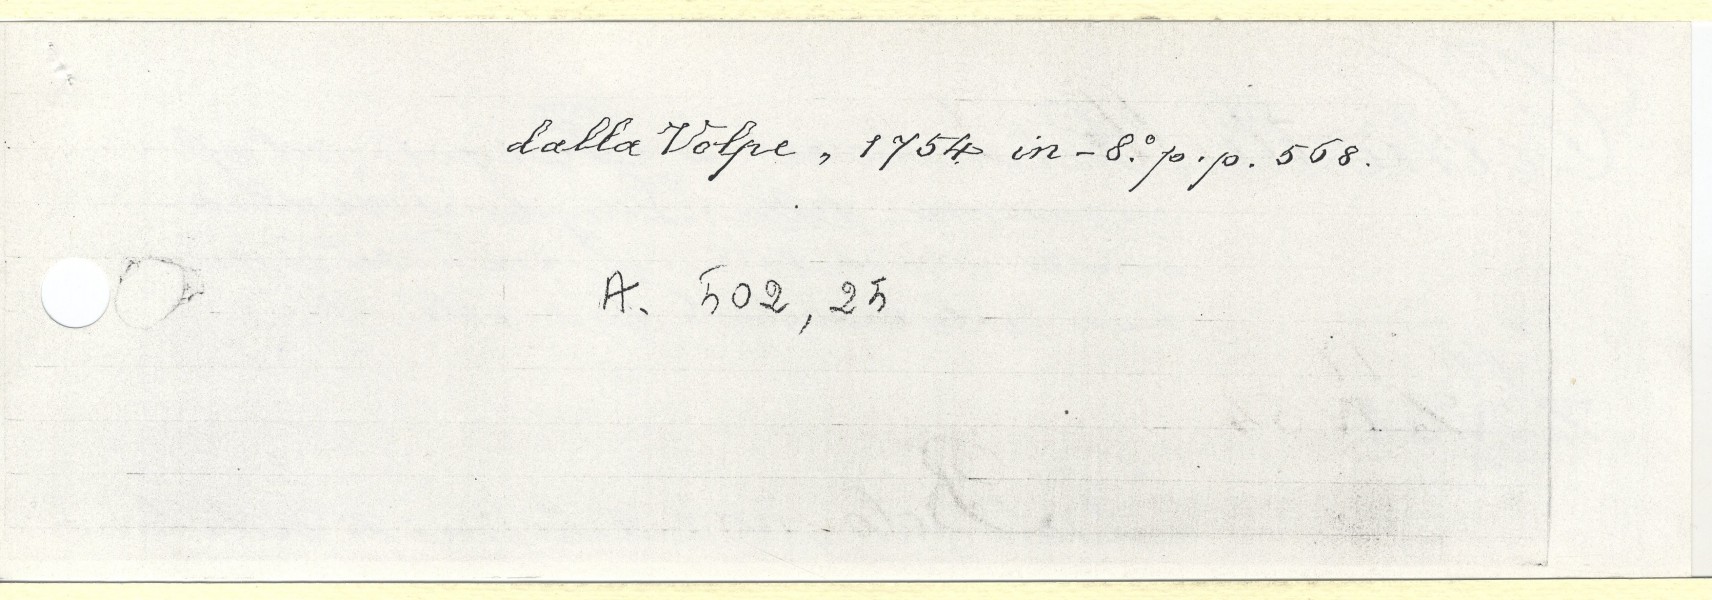 dalla Volpe, 1754 in-8.° p.p. 568.
A. 502,25